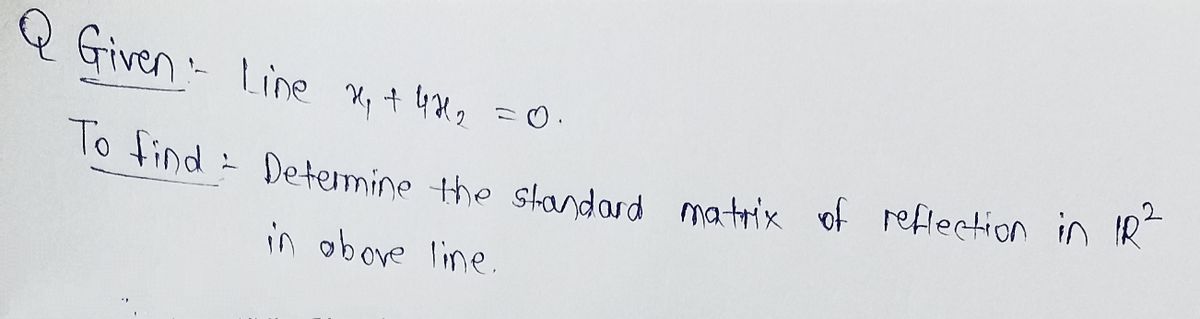 Q Given :- Line x₁ + 4x₂ = 0.
To find :- Determine the standard matrix of reflection in ℝ²
in above line.